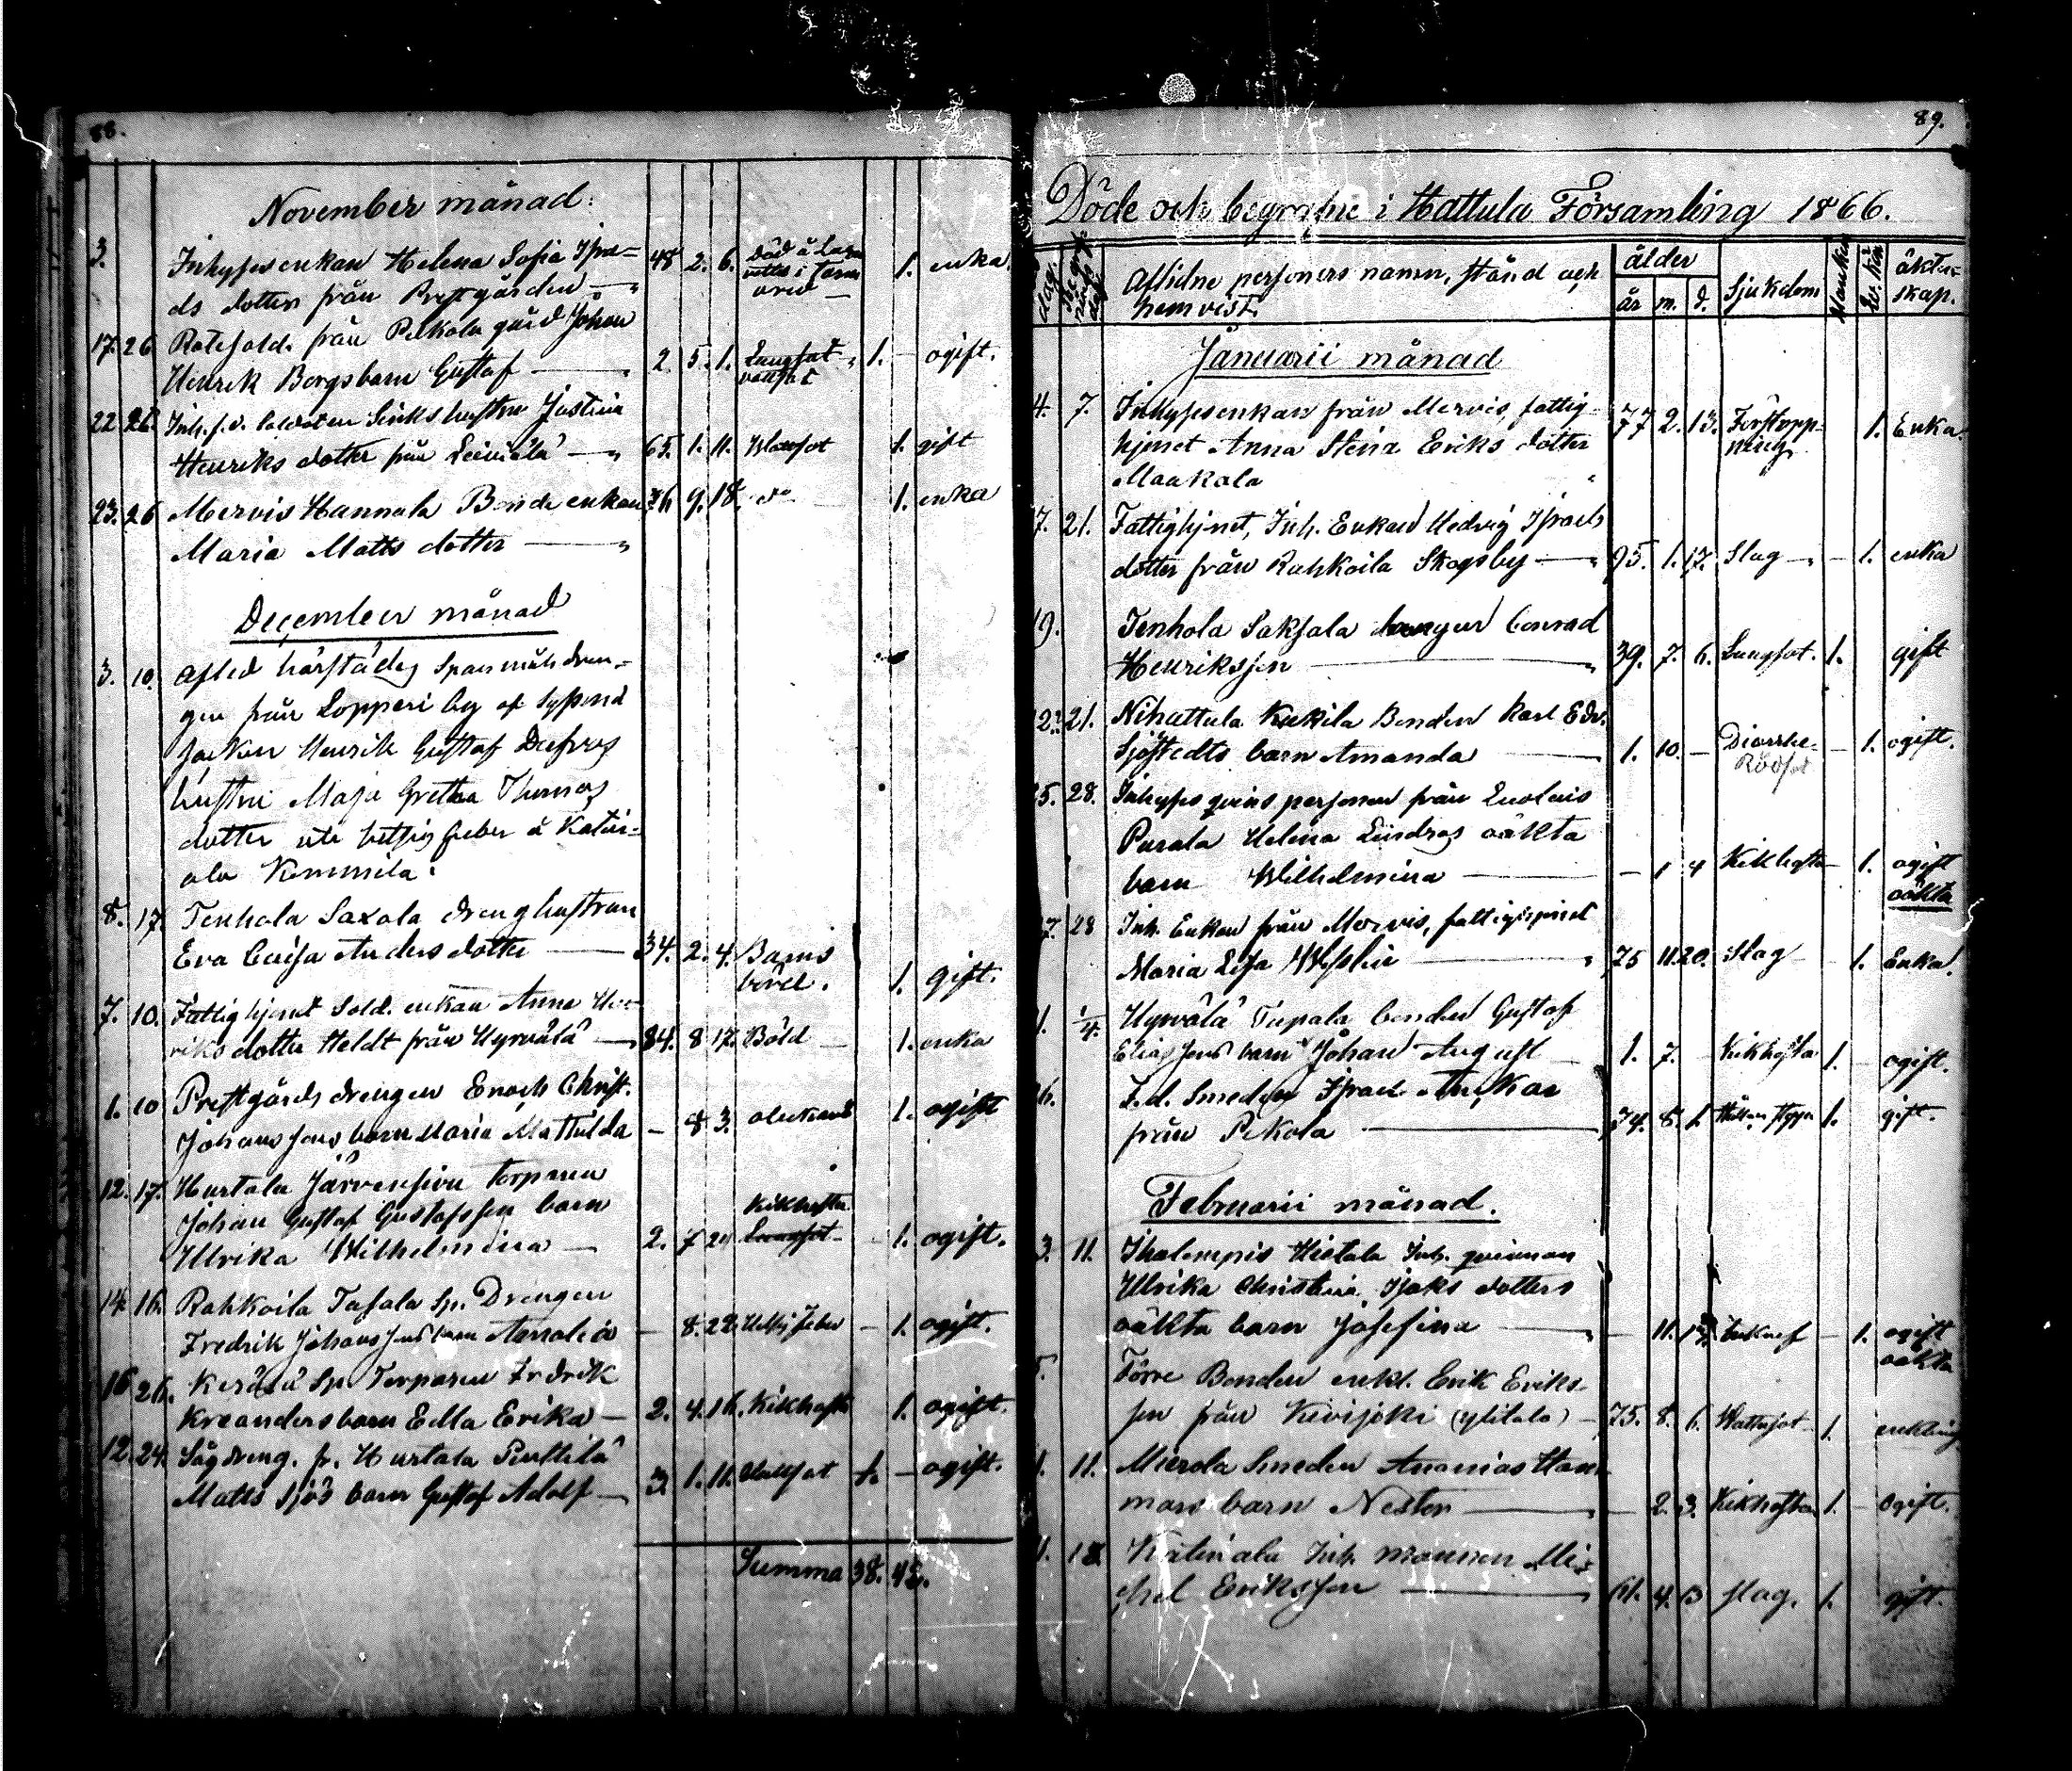 88.
November månad.
3. Inhyses enkan Helena Sofia Isra= 48 2. 6. Död å Laza
ds dotter från Prestgården 1. enka.
17. 26 Rotesold. från Pelkola gård Johan
Henrik Borgs barn Gustaf 2. 5. 1. Lungsot 1. ogift.
22 26. Inh. f.d. Soldaten hustru Justina
Henriks dotter från Leiniälä 65. 1. 11. 1. gift
23. 26 Mervis Hannula Bonde enkan 9. 18. do 1. enka
Maria Matts dotter
December månad
3. 10. Afled härstädes Spanmåls dren=
gen från Lopperi by af Sysmä
Socken Henrik Gustaf
hustru Maja Gretha Thomas
dotter uti hettsig feber å Katin=
ala Kommila.
8. 17. Tenhola Saxala dreng hustrun
Eva Caisa Anders dotter 34. 2. 4. Barns
börd. 1. gift.
7. 10. Fattighjonet Sold. enkan Anna Hen=
riks dotter Heldt från Hyrvälä 84. 8 17. Böld 1. enka
1. 10 Prestgårds drengen Enoch Christ.
Johans sons barn Maria Mathilda — 8 3. obekant 1. ogift
12. 17. Hurtala Järvensivu torparen
Johan Gustaf Gustafssen barn Kikhosta
Ulrika Wilhelmina 2. 7 24 Lungsot 1. ogift.
14. 16. Rahkoila Tasala Sp. Drengen
Fredrik Johans sons barn Amalia — 8. 22. Hets. feber — 1. ogift.
16 26. Kerälä Sp. Torparen Fredrik
Kreanders barn Edla Erika 2. 4. 16. Kikhosta 1. ogift.
12. 24. Sågdreng. fr. Hurtala Penttilä
Matts Sjös barn Gustaf Adolf 3. 1. 11. 1. — ogift.
Summa 38. 48.
89.
Döde och begrafne i Hattula Församling 1866.
dag. begrafnings dag
Aflidne personers namn, stånd och
hemvist.
ålder
år m. d. Sjukdom Mankön Qv. kön äkten=
skap.
Januarii månad
4. 7. Inhyses enkan från Mervis, fattig= 77 2. 13. Förstopp= 1. Enka.
hjonet Anna Stina Eriks dotter ning
Maakala
7. 21. Fattighjonet, Inh. Enkan Hedvig Israels
dotter från Rahkoila Skogsby 95. 1. 17. Slag — 1. enka
19. Tenhola Saksala drengen Conrad
Henrikssen 39. 7. 6. Lungsot. 1. gift
21. Nihattula Kukila Bonden Karl Edv.
Sjöstedts barn Amanda 1. 10. — Diarrhe= — 1. ogift.
Rödsot
25. 28. Inhyses qvins personen från Luolais
Parala Helena Lindros oäkta
barn Wilhelmina — 1 4 Kikhosta — 1. ogift
oäkta
27. 28 Inh. Enkan från Mervis, fattighjonet
Maria Lisa 75 11. 20. Slag 1. Enka.
1. 1/4. Hyrvälä Tupala bonden Gustaf
Elias sons barn Johan August 1. 7. Kikhosta 1. — ogift.
6. F.d. Smeden Israel
från Pekola 8. 1. 1. gift.
Februarii månad.
3. 11. Ihalempis Hietala Inh. qvinnan
Ulrika Christina Isaks dotters
oäkta barn Josefina — 11. — 1. ogift
oäkta
5. Förre Bonden enkl. Erik Eriks=
sen från Kivijoki (ylitalo) 75. 8. 6. Vattusot 1. enkling
11. Mierola Smeden Ananias Ham=
mars barn Nestor — 2. 3. Kikhosta 1. — ogift.
18. Katinala Inh. mannen Mi=
chel Erikssen 61. 4. 13 Slag. 1. gift.